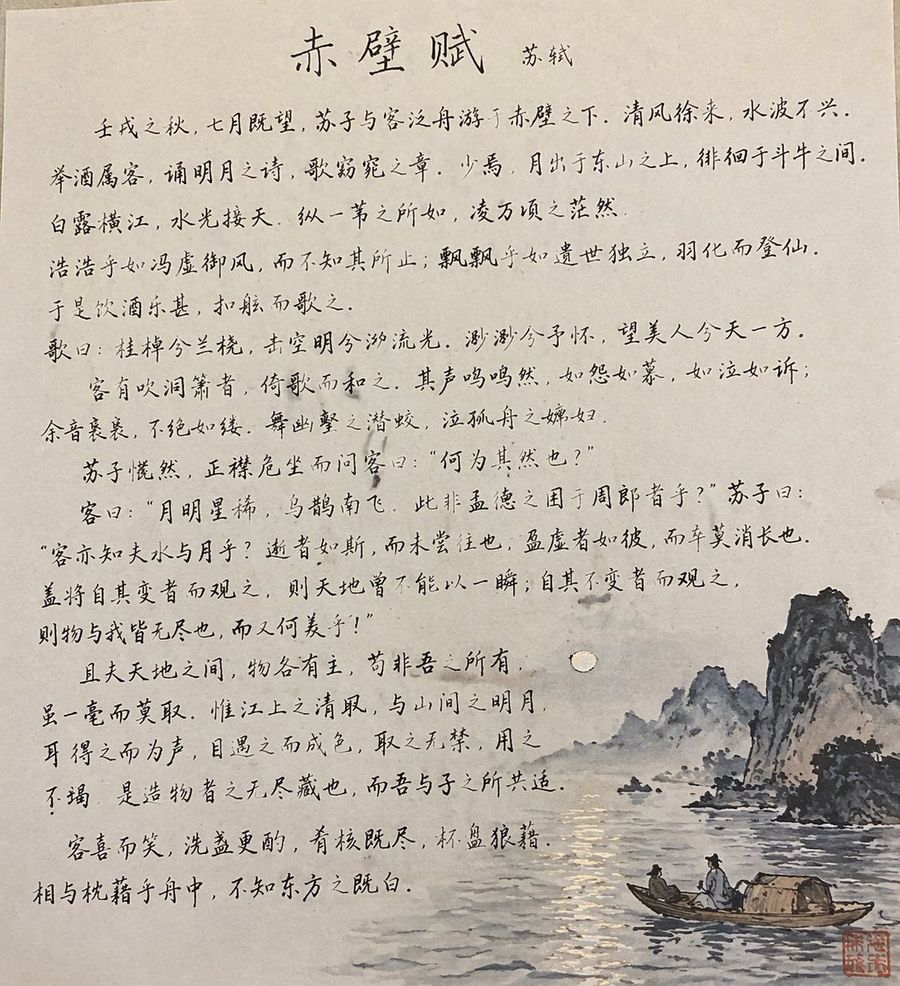 赤壁赋 苏轼
壬戌之秋，七月既望，苏子与客泛舟游于赤壁之下．清风徐来，水波不兴．
举酒属客，诵明月之诗，歌窈窕之章．少焉，月出于东山之上，徘徊于斗牛之间．
白露横江，水光接天．纵一苇之所如，凌万顷之茫然．
浩浩乎如冯虚御风，而不知其所止；飘飘乎如遗世独立，羽化而登仙．
于是饮酒乐甚，扣舷而歌之．
歌曰：桂棹兮兰桡，击空明兮泐流光．渺渺兮予怀，望美人兮天一方．
客有吹洞箫者，倚歌而和之．其声呜呜然，如怨如慕，如泣如诉；
余音袅袅，不绝如缕．舞幽壑之潜蛟，泣孤舟之嫠妇．
苏子慌然，正襟危坐而问客曰：“何为其然也？”
客曰：“月明星稀，乌鹊南飞．此非孟德之困于周郎者乎？”苏子曰：
“客亦知夫水与月乎？逝者如斯，而未尝往也，盈虚者如彼，而卒莫消长也．
盖将自其变者而观之，则天地曾不能以一瞬；自其不变者而观之，
则物与我皆无尽也，而又何羡乎！”
且夫天地之间，物各有主，苟非吾之所有，
虽一毫而莫取．惟江上之清取，与山间之明月，
耳得之而为声，目遇之而成色，取之无禁，用之
不竭．是造物者之无尽藏也，而吾与子之所共适．
客喜而笑，洗盏更酌，肴核既尽，杯盘狼藉．
相与枕藉乎舟中，不知东方之既白．